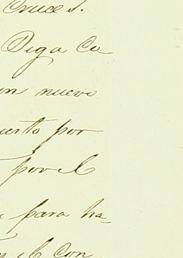 Cruces.
Diga Ce
un nuevo
uesto por
por el
para ha-
el Con